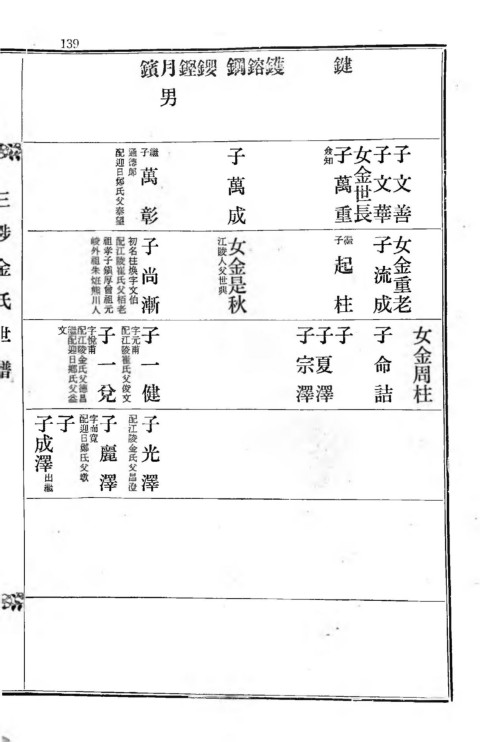 139
鍵
鑊
鎔
鋼
鑁
鏗
月男
鑌
子文善
子文華
女金世長
子萬重
僉知
子萬成
繼子萬彰
通德郞
配迎日鄭氏父泰望
女金重老
子流成
系子起柱
女金是秋
江陵人父世興
子尚漸
初名柱煥字文伯
配江陵崔氏父栢老
祖孝子鎭厚曾祖元
峻外祖朱烶熊川人
女金周柱
子命詰
子
子夏澤
子宗澤
子一健
字元甫
配江陵崔氏父俊文
子一兌
字悅甫
配江陵金氏父德昌
繼配迎日鄭氏父
文
子光澤
配江陵金氏父昌澄
子麗澤
字而寬
配迎日鄭氏父
子
子成澤出繼
三陟金氏世譜